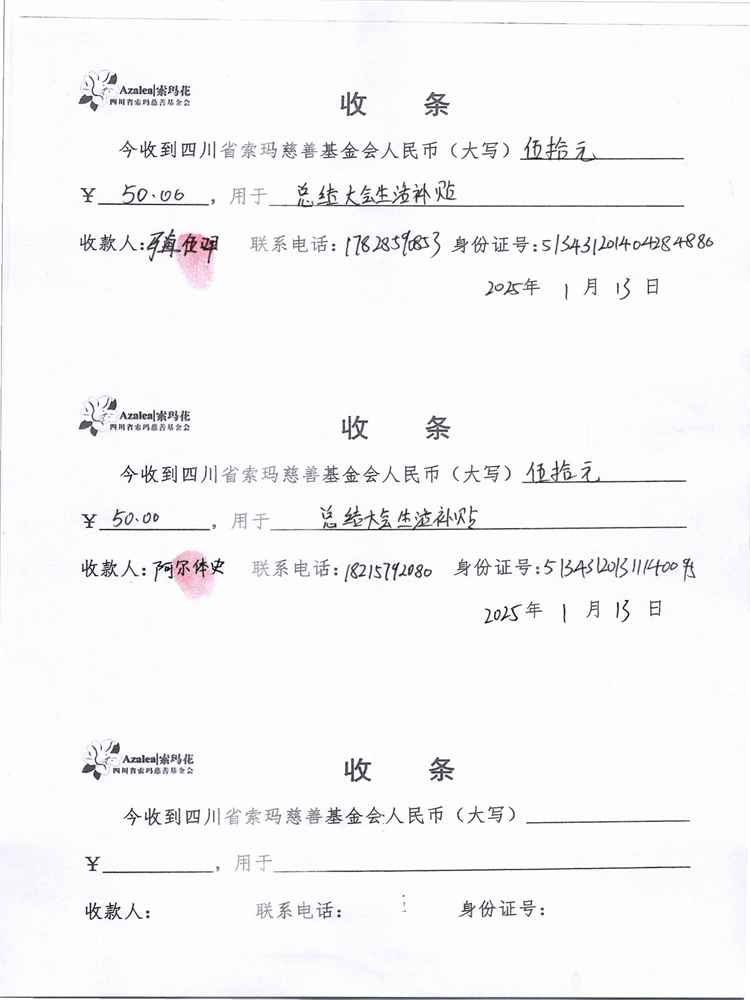 Azalea|索玛花
四川省索玛慈善基金会
收 条
今收到四川省索玛慈善基金会人民币（大写）伍拾元
¥ 50.00，用于 总结大会生活补贴
收款人： 联系电话：17828590853 身份证号：513431201404284880
2025年 1月 13日
Azalea|索玛花
四川省索玛慈善基金会
收 条
今收到四川省索玛慈善基金会人民币（大写）伍拾元
¥ 50.00，用于 总结大会生活补贴
收款人：阿尔体史 联系电话：18215792080 身份证号：
2025年 1月 13日
Azalea|索玛花
四川省索玛慈善基金会
收 条
今收到四川省索玛慈善基金会人民币（大写）
¥ ，用于
收款人： 联系电话： 身份证号：